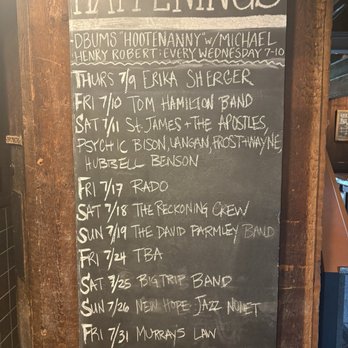 HAPPENINGS
DBUMS "HOOTENANNY" w/ MICHAEL
HENRY ROBERT: EVERY WEDNESDAY 7-10
THURS 7/9 ERIKA SHERGER
FRI 7/10 TOM HAMILTON BAND
SAT 7/11 ST. JAMES + THE APOSTLES,
PSYCHIC BISON, LANGAN, FROST+WAYNE,
HUBBELL BENSON
FRI 7/17 RADO
SAT 7/18 THE RECKONING CREW
SUN 7/19 THE DAVID PARMLEY BAND
FRI 7/24 TBA
SAT 7/25 BIG TRIP BAND
SUN 7/26 NEW HOPE JAZZ NONET
FRI 7/31 MURRAYS LAW